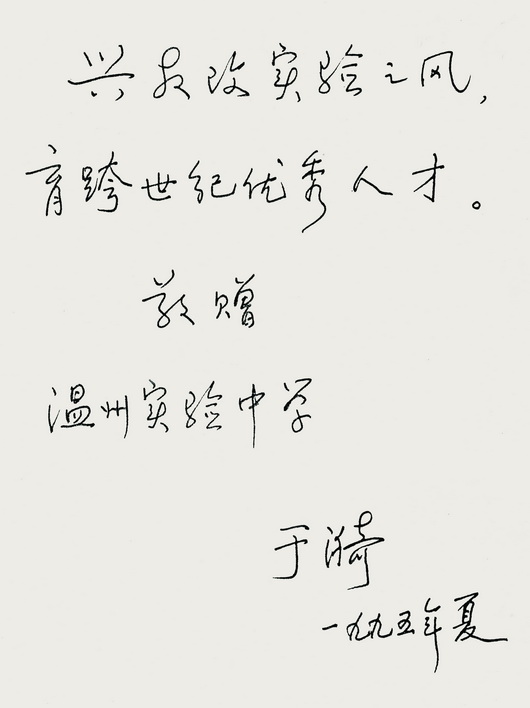 兴教改实验之风，
育跨世纪优秀人才。
敬赠
温州实验中学
于漪
一九九五年夏